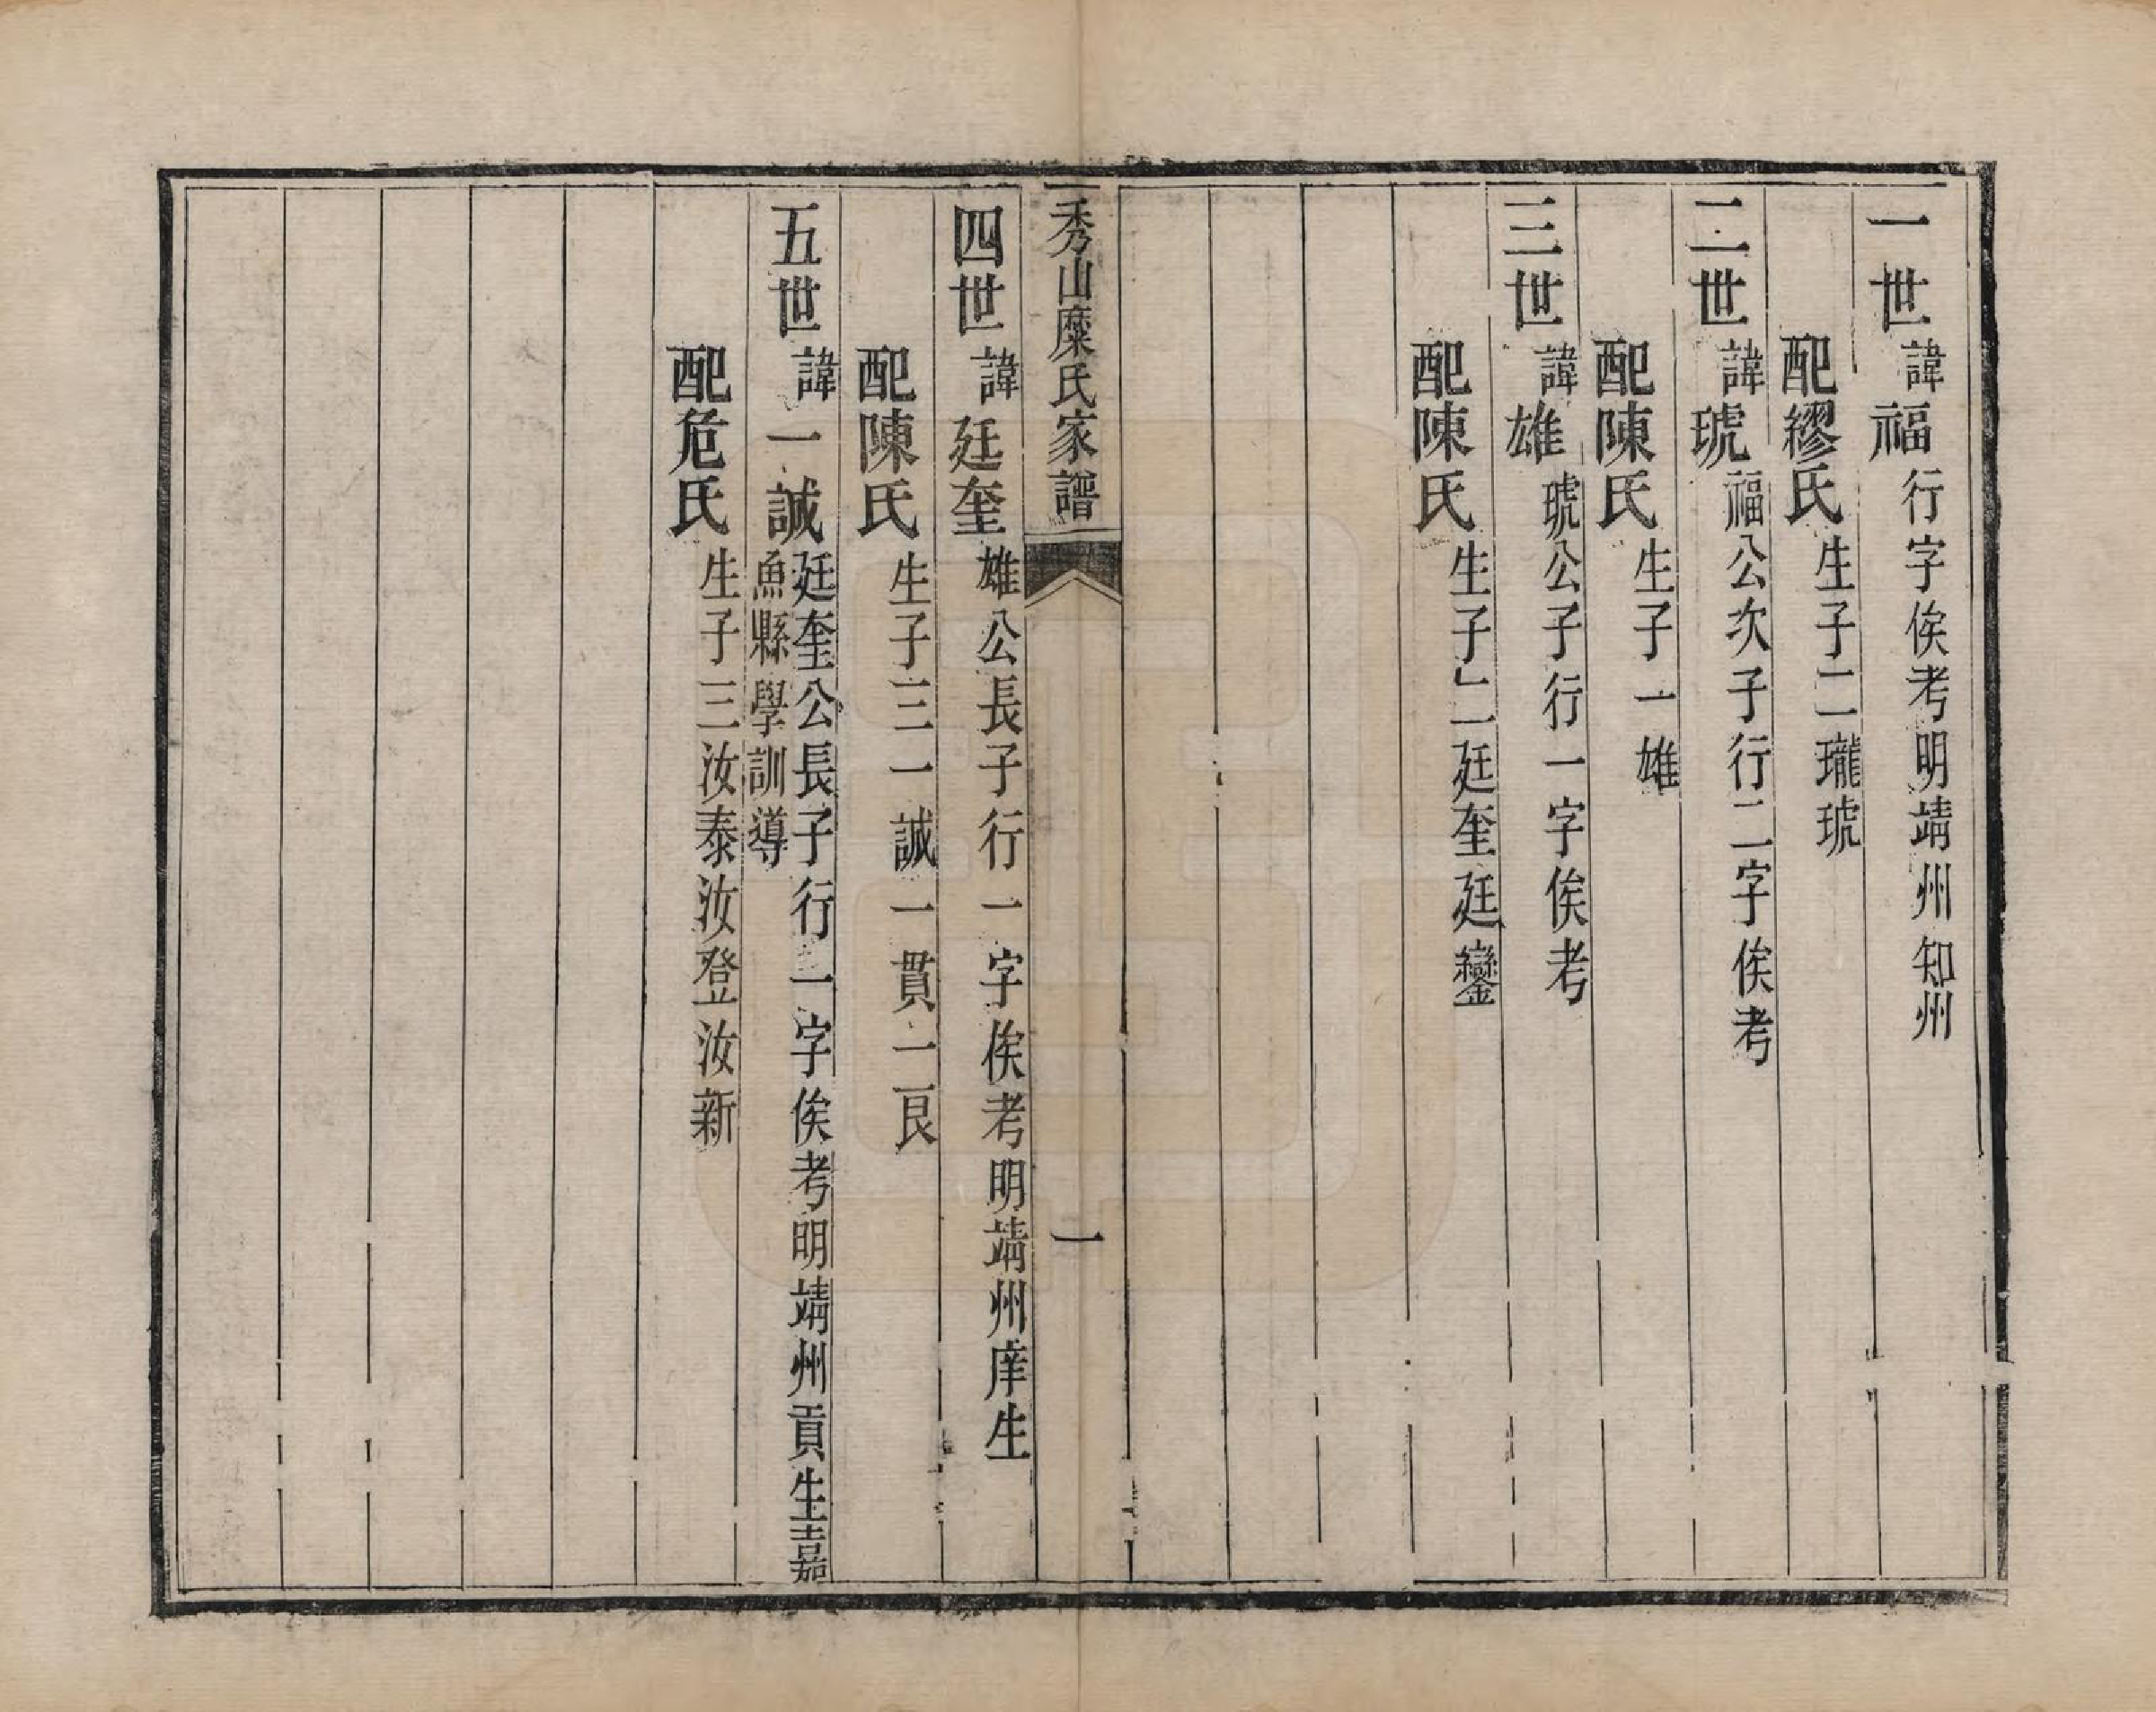 一世 諱福 行字俟考明靖州知州
配繆氏 生子二瓏琥
二世 諱琥 福公次子行二字俟考
配陳氏 生子一雄
三世 諱雄 琥公子行一字俟考
配陳氏 生子二廷奎廷鑾
秀山糜氏家譜 一
四世 諱廷奎 雄公長子行一字俟考明靖州庠生
配陳氏 生子三一誠一貫一艮
五世 諱一誠 廷奎公長子行一字俟考明靖州貢生嘉
魚縣學訓導
配危氏 生子三汝泰汝登汝新